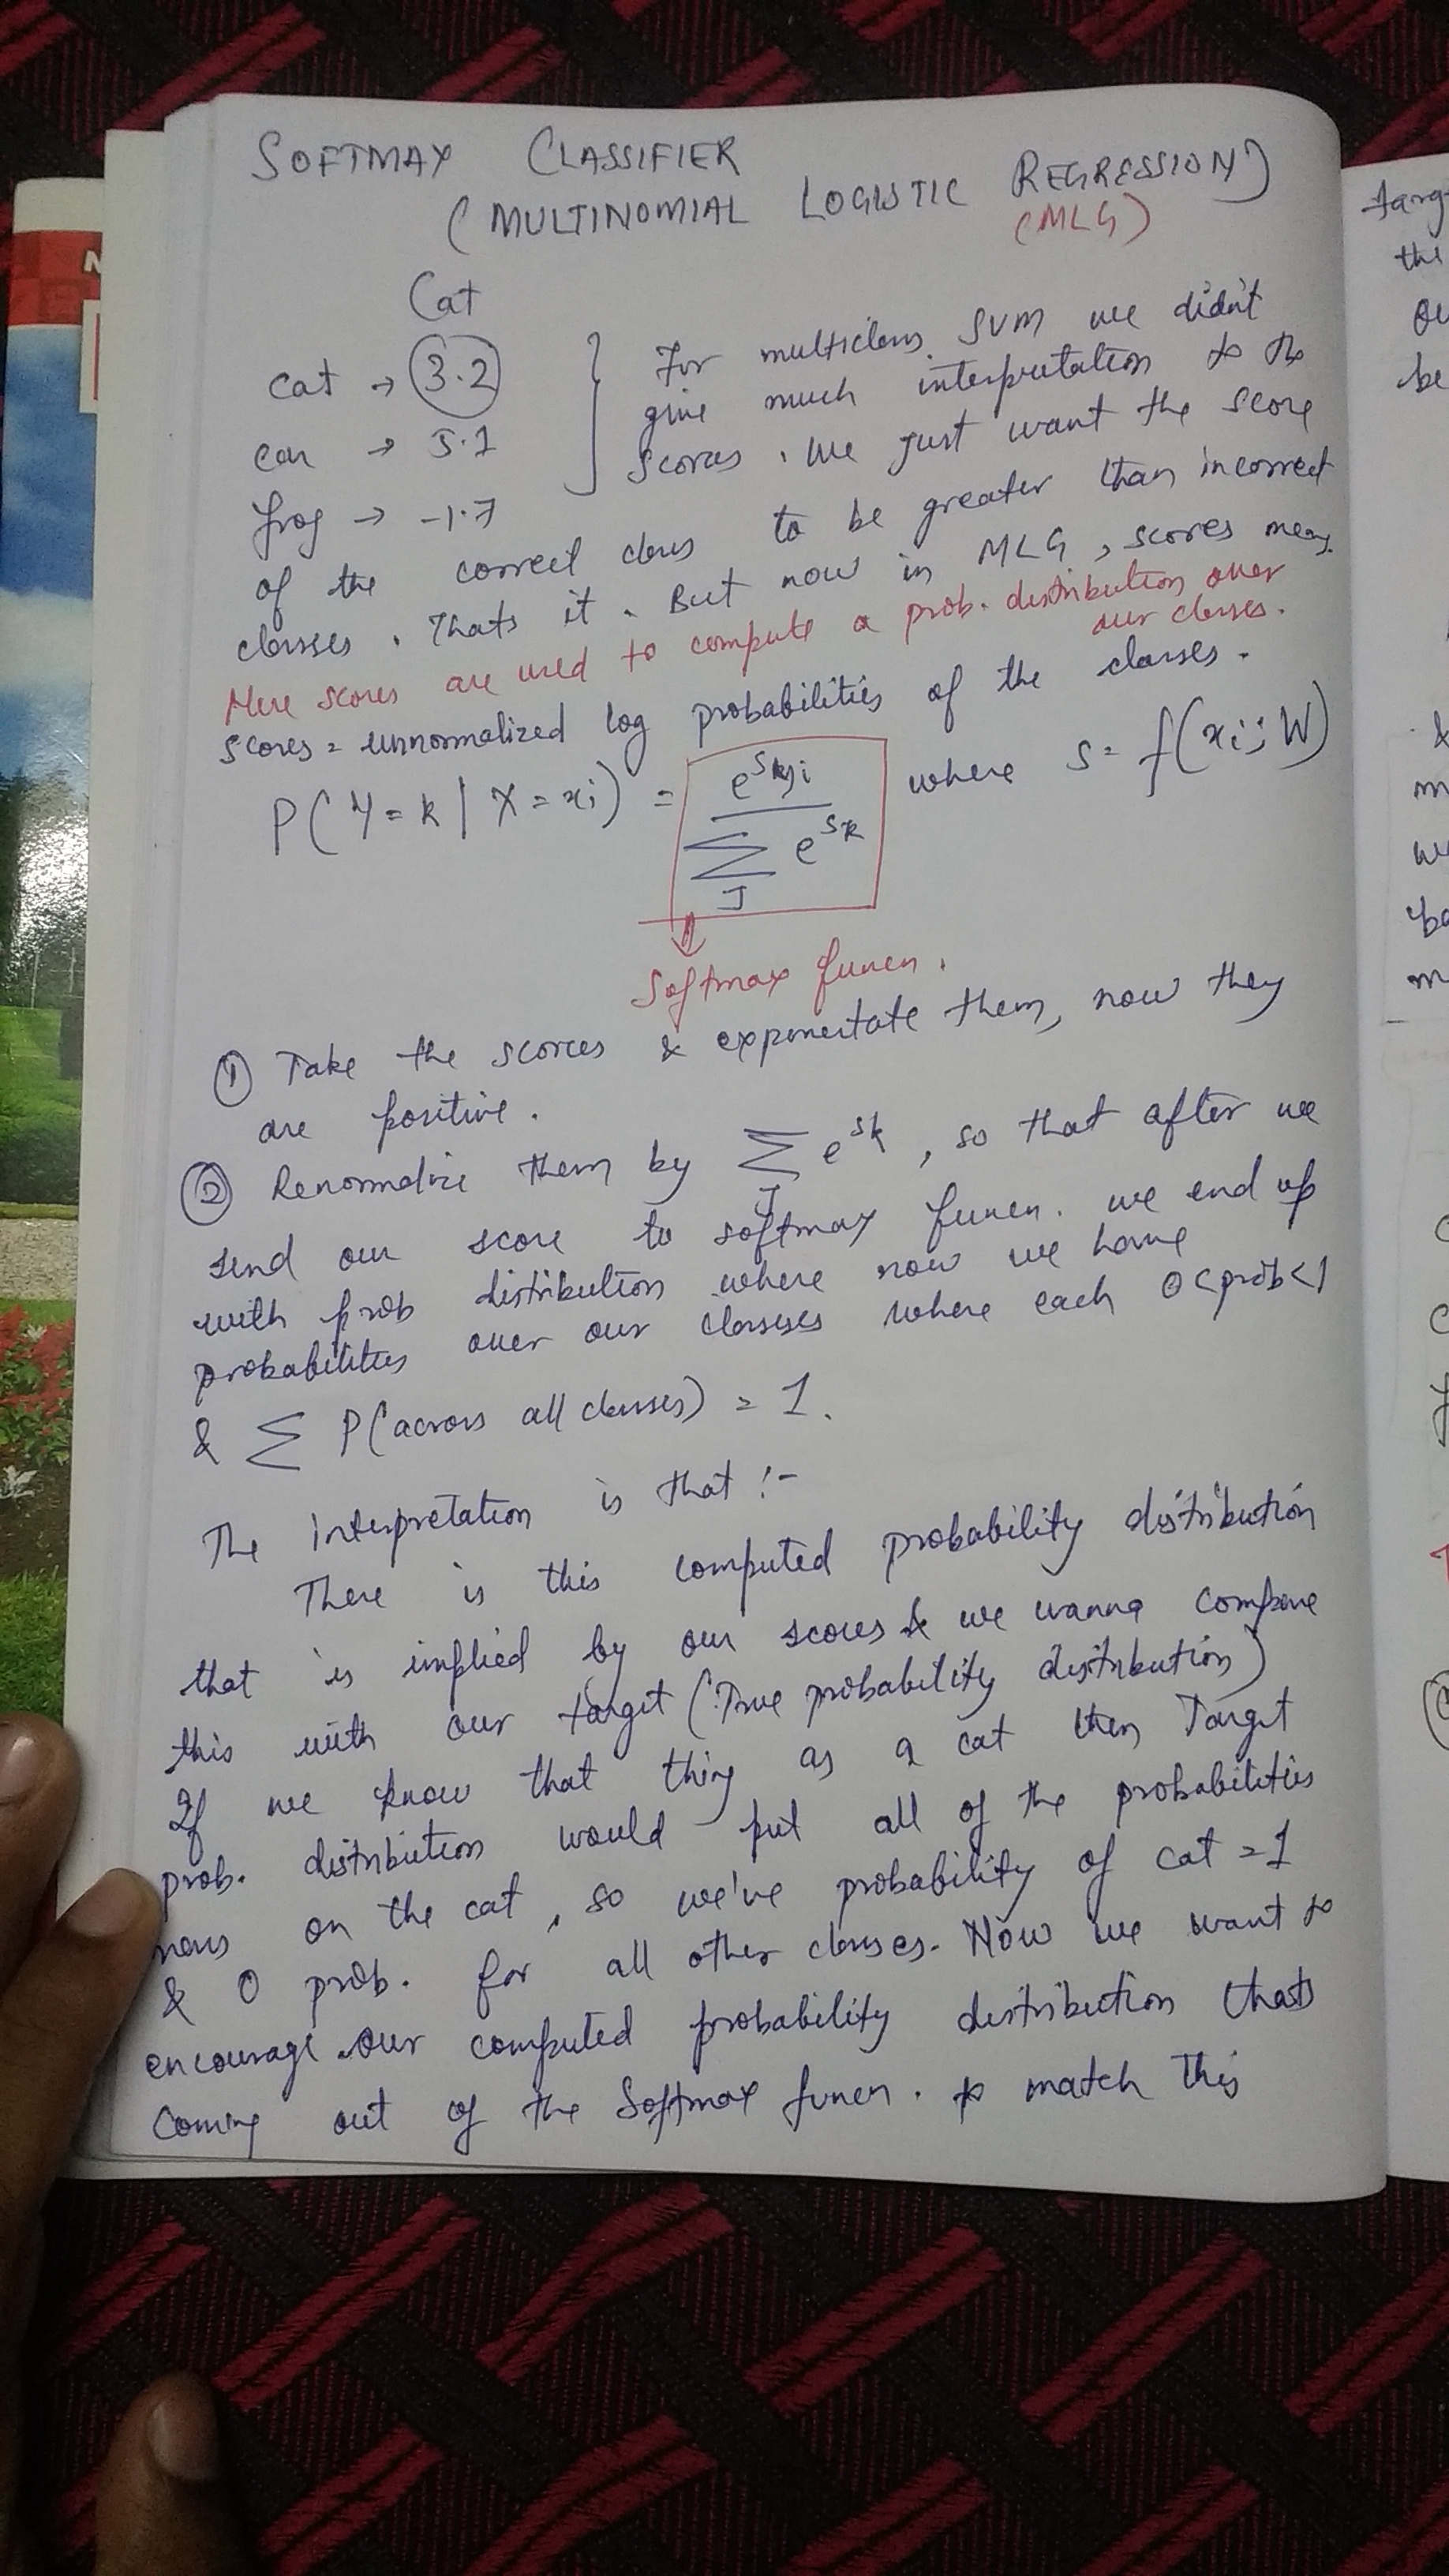 SOFTMAX CLASSIFIER
(MULTINOMIAL LOGISTIC REGRESSION)
(MLG)
Cat
cat → 3.2
car → 5.1
frog → -1.7
For multiclass SVM we didn't
give much interpretation to the
scores. We just want the score
of the correct class to be greater than incorrect
classes. Thats it. But now in MLG, scores mean.
Here scores are used to compute a prob. distribution over
our classes.
scores = unnormalized log probabilities of the classes.
P(Y=k | X=xi) = e^syi / Σ_J e^sk where s = f(xi; W)
Softmax funcn.
① Take the scores & exponentate them, now they
are positive.
② Renormalize them by Σ_J e^sk, so that after we
send our score to softmax funcn. we end up
with prob distribution where now we have
probabilities over our classses where each 0<prob<1
& Σ P(across all classes) = 1.
The interpretation is that :-
There is this computed probability distribution
that is implied by our scores & we wanna compare
this with our target (True probability distribution)
If we know that thing as a cat then Target
prob. distribution would put all of the probabilities
mass on the cat, so we've probability of cat = 1
& 0 prob. for all other classes. Now we want to
encourage our computed probability distribution thats
coming out of the Softmax funcn. to match this
targ
the
be